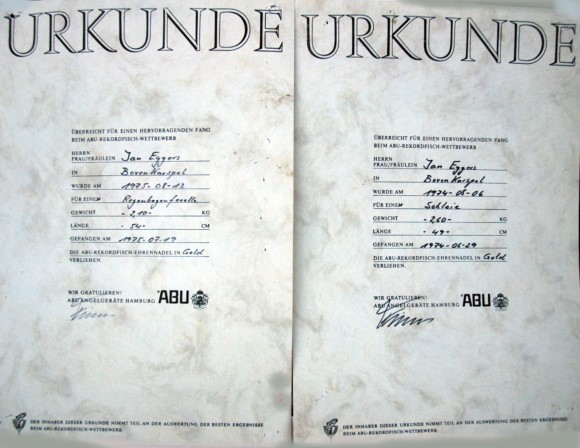 URKUNDE
ÜBERREICHT FÜR EINEN HERVORRAGENDEN FANG
BEIM ABU-REKORDFISCH-WETTBEWERB
HERRN
FRAU/FRÄULEIN Jan Eggers
IN Bovenkarspel
WURDE AM 1975-08-13
FÜR EINE Regenbogenforelle
GEWICHT -2,10- KG
LÄNGE -54- CM
GEFANGEN AM 1975-07-19
DIE ABU-REKORDFISCH-EHRENNADEL IN Gold
VERLIEHEN.
WIR GRATULIEREN!
ABU ANGELGERÄTE HAMBURG ABU
DER INHABER DIESER URKUNDE NIMMT TEIL AN DER AUSWERTUNG DER BESTEN ERGEBNISSE
BEIM ABU-REKORDFISCH-WETTBEWERB
URKUNDE
ÜBERREICHT FÜR EINEN HERVORRAGENDEN FANG
BEIM ABU-REKORDFISCH-WETTBEWERB
HERRN
FRAU/FRÄULEIN Jan Eggers
IN Bovenkarspel
WURDE AM 1974-08-06
FÜR EINE Schleie
GEWICHT -2,60- KG
LÄNGE -49- CM
GEFANGEN AM 1974-06-29
DIE ABU-REKORDFISCH-EHRENNADEL IN Gold
VERLIEHEN.
WIR GRATULIEREN!
ABU ANGELGERÄTE HAMBURG ABU
DER INHABER DIESER URKUNDE NIMMT TEIL AN DER AUSWERTUNG DER BESTEN ERGEBNISSE
BEIM ABU-REKORDFISCH-WETTBEWERB